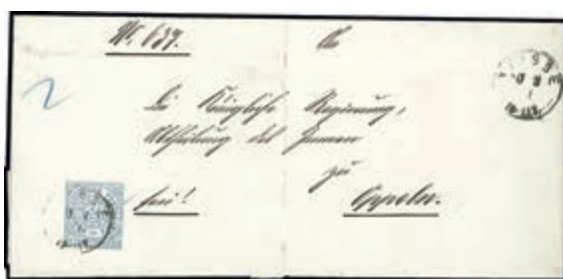 No. 639.
An
Die Königliche Regierung,
Abtheilung des Innern
zu
frei! Oppeln.